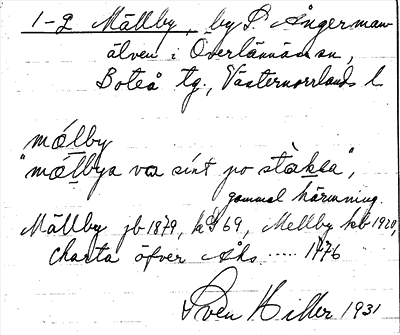 1-2 Mällby, by P. Ångerman-
älven i Överlännäs sn,
Boteå tg., Västernorrlands l
mó̱lby
"mó̱lbya va sint po stàksa",
gammal härmning.
Mällby jb 1879, kS 69, Mellby kb 1920,
Charta öfver Åhs ..... 1776
Sven Hiller 1931